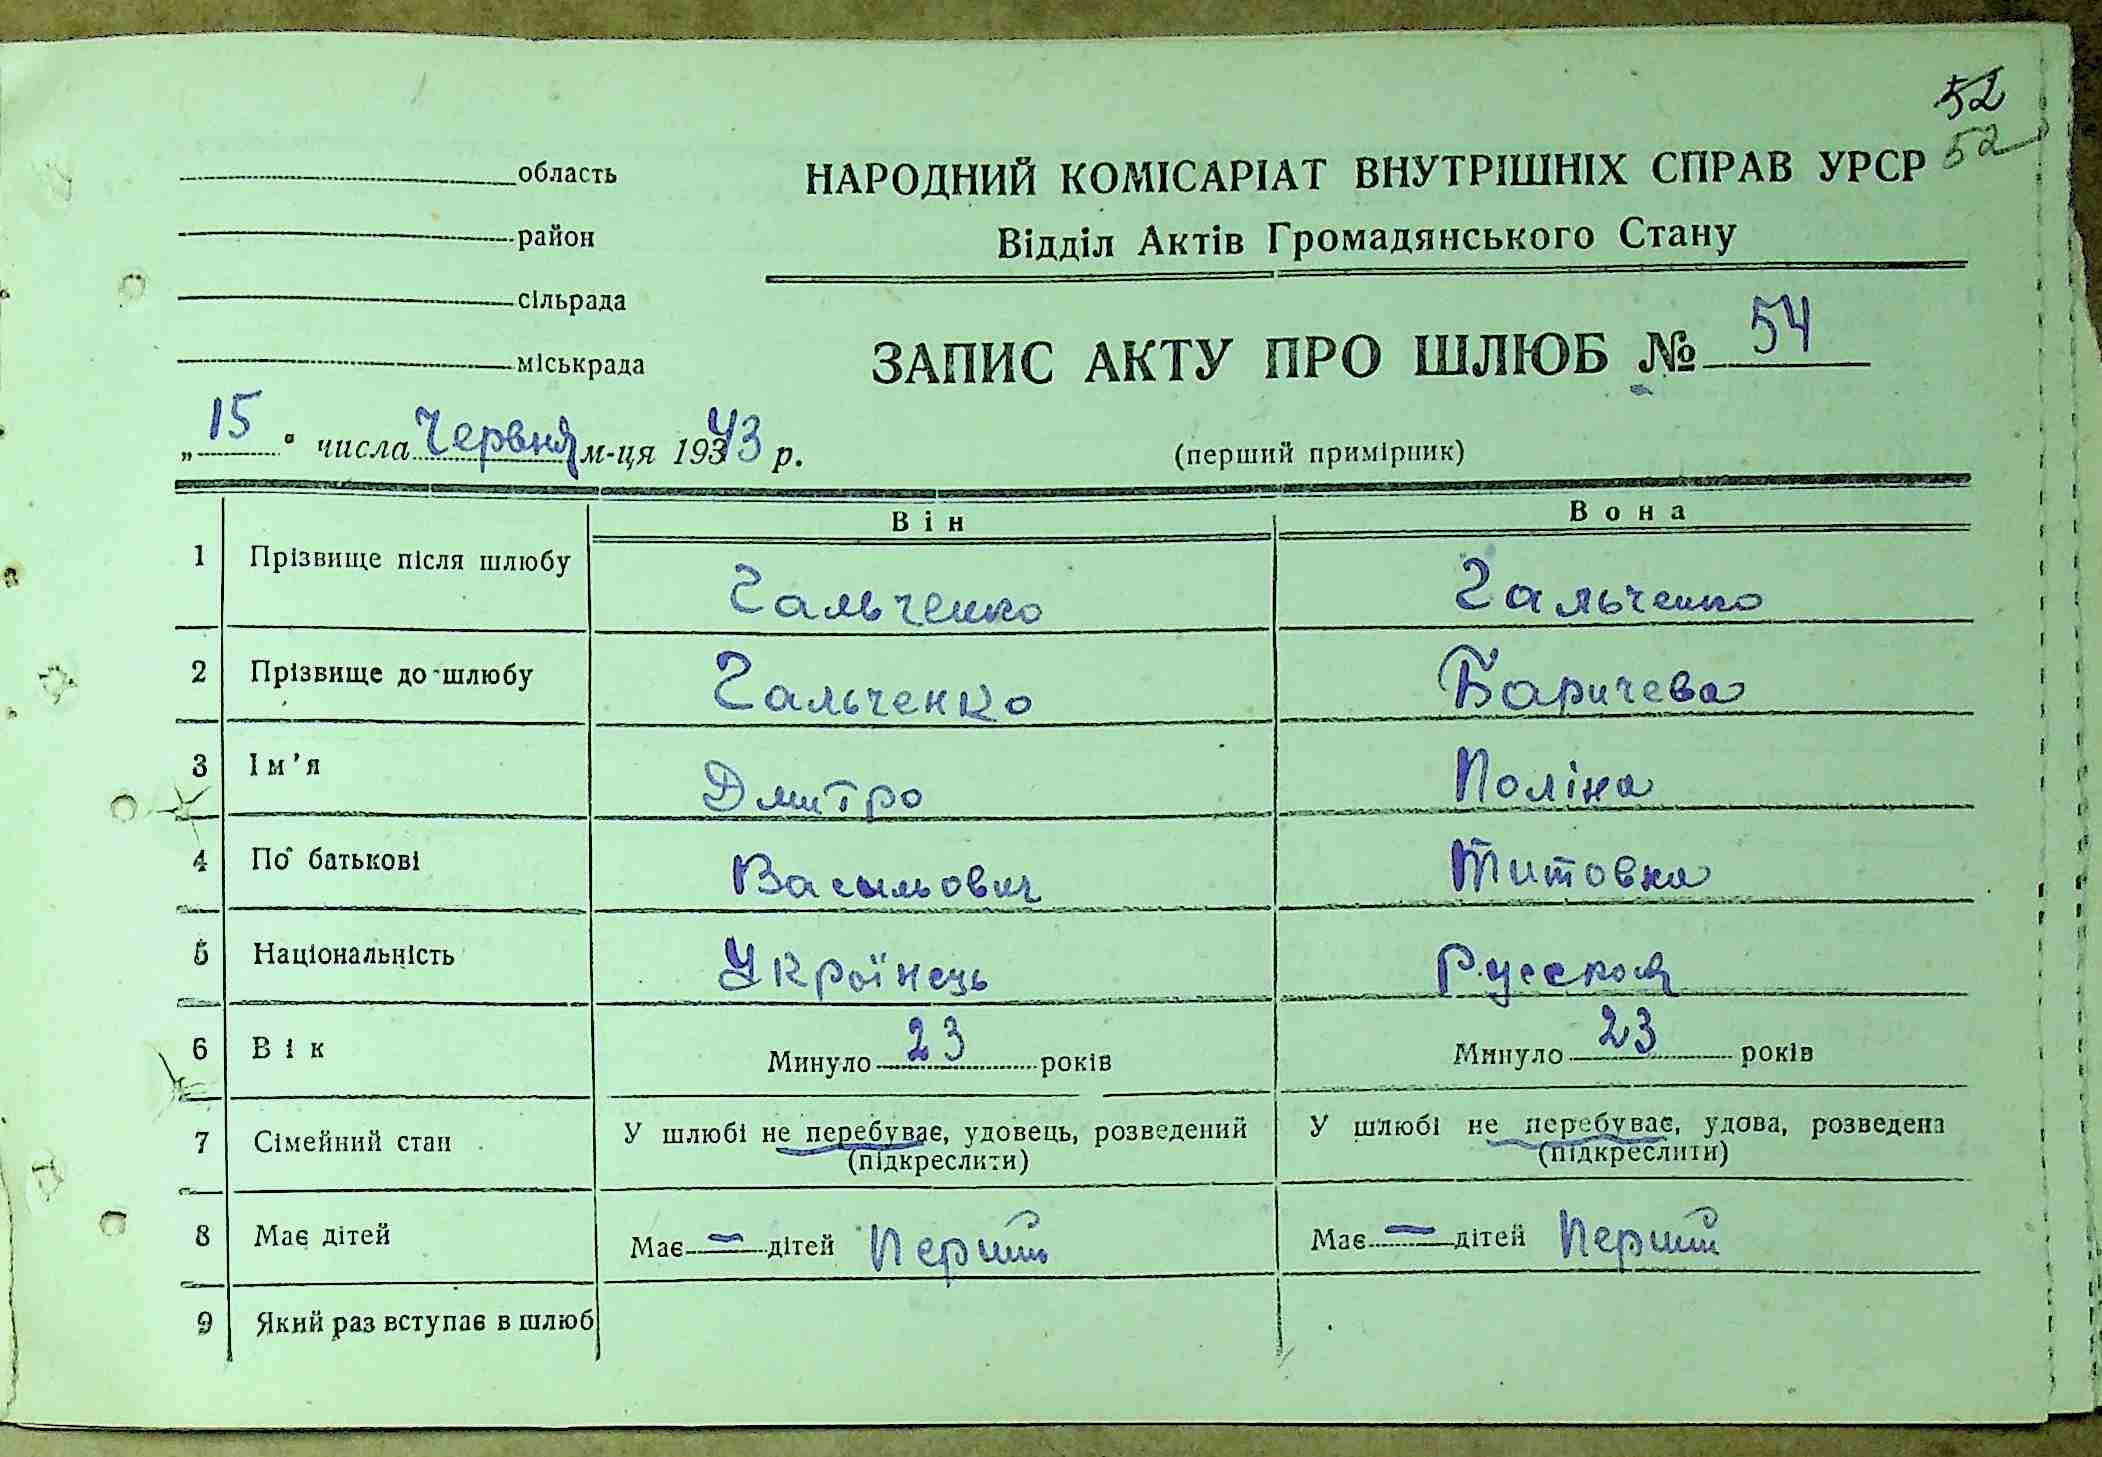 52
52
область
район
сільрада
міськрада
НАРОДНИЙ КОМІСАРІАТ ВНУТРІШНІХ СПРАВ УРСР
Відділ Актів Громадянського Стану
ЗАПИС АКТУ ПРО ШЛЮБ № 54
„15“ числа Червня м-ця 1943 р.
(перший примірник)
Він Вона
1 Прізвище після шлюбу Гальченко Гальченко
2 Прізвище до шлюбу Гальченко Баричева
3 Ім'я Дмитро Поліна
4 По батькові Васильович Титовна
5 Національність Українець Русская
6 Вік Минуло 23 років Минуло 23 років
7 Сімейний стан У шлюбі не перебуває, удовець, розведений У шлюбі не перебуває, удова, розведена
(підкреслити) (підкреслити)
8 Має дітей Має — дітей Перший Має — дітей Перший
9 Який раз вступає в шлюб